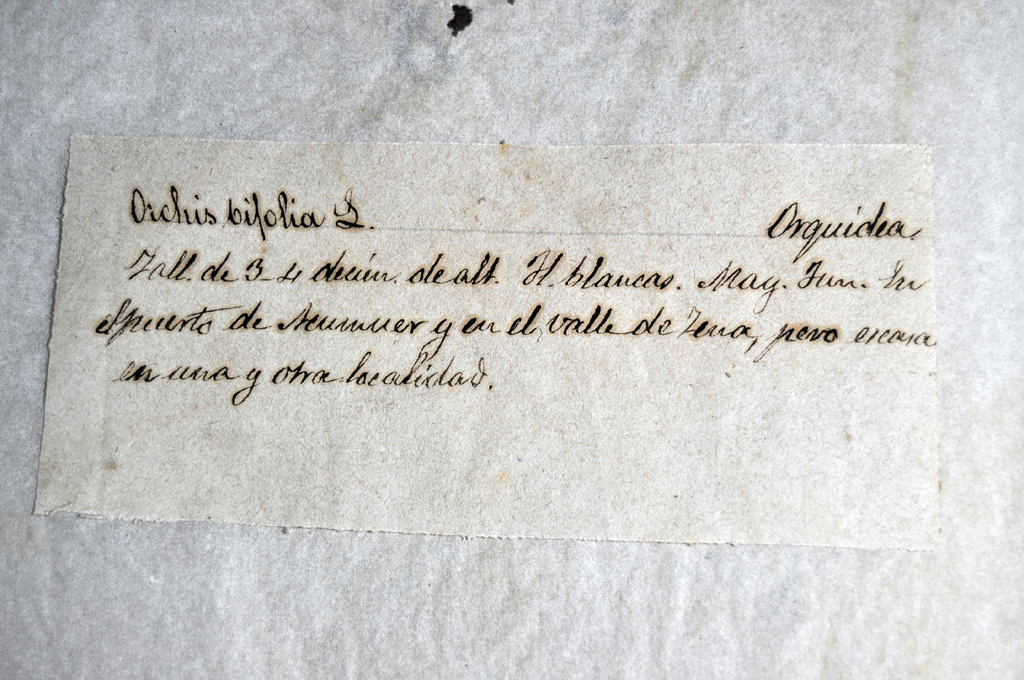 Orchis bifolia L. Orquídea.
Tall. de 3-4 decím. de alt. Fl. blancas. May. Jun. En
el puerto de y en el valle de Tena, pero escasa
en una y otra localidad.